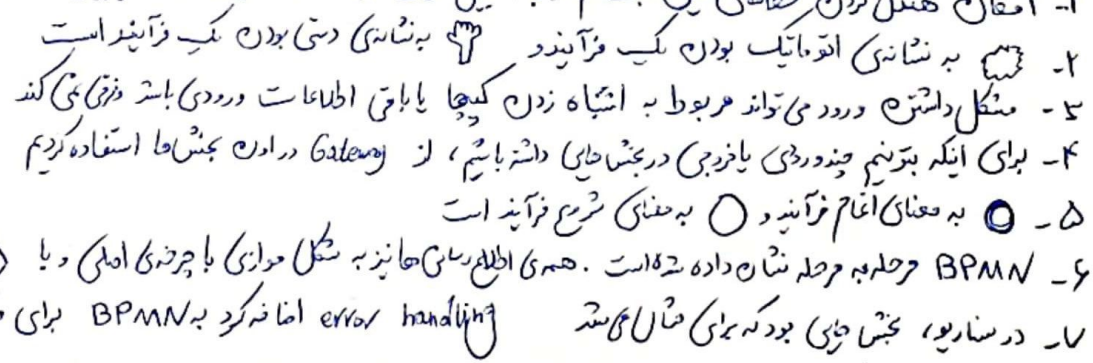 ۱- امکان هندل کردن
۲- به نشانه‌ی اتوماتیک بودن یک فرآیند و به نشانه‌ی دستی بودن یک فرآیند است
۳- مشکل داشتن ورود می‌تواند مربوط به اشتباه زدن کپچا یا باقی اطلاعات ورودی باشد و فرقی نمی‌کند
۴- برای اینکه بتونیم چند ورودی یا خروجی در بخش‌هایی داشته باشیم، از Gateway در اون بخش‌ها استفاده کردیم
۵- به معنای اتمام فرآیند و به معنای شروع فرآیند است
۶- BPMN مرحله به مرحله نشان داده شده است. همه‌ی اطلاع رسانی‌ها نیز به شکل موازی با چرخه‌ی اصلی و با
۷- در سناریو، بخش‌هایی بود که برای مثال می‌شد error handling اضافه کرد به BPMN برای